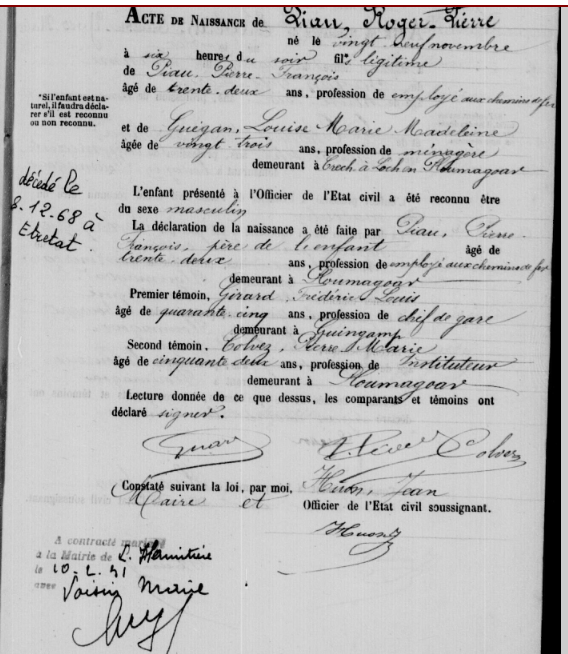 ACTE DE NAISSANCE de Piau, Roger-Pierre
né le vingt neuf novembre
à six heures du soir fils légitime
de Piau, Pierre-François
âgé de trente-deux ans, profession de employé aux chemins de fer
*Si l'enfant est na-
turel, il faudra décla-
rer s'il est reconnu
ou non reconnu.
et de Guégan, Louise Marie Madeleine
âgée de vingt trois ans, profession de ménagère
demeurant à Crech à Loch en Ploumagoar
décédé le
8.12.68 à
Etretat.
L'enfant présenté à l'Officier de l'Etat civil a été reconnu être
du sexe masculin
La déclaration de la naissance a été faite par Piau, Pierre-
François, père de l'enfant âgé de
trente-deux ans, profession de employé aux chemins de fer
demeurant à Ploumagoar
Premier témoin, Gérard, Frédéric Louis
âgé de quarante-cinq ans, profession de chef de gare
demeurant à Guingamp
Second témoin, Colvez, Pierre-Marie
âgé de cinquante deux ans, profession de Instituteur
demeurant à Ploumagoar
Lecture donnée de ce que dessus, les comparants et témoins ont
déclaré signer.
Colvez
Constaté suivant la loi, par moi, Huon, Jean
Maire et Officier de l'Etat civil soussigné.
Huon
A contracté mariage
à la Mairie de
le 10.2.41
avec Voisin Marie